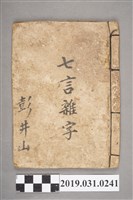 七言雜字
彭井山
2019.031.0241